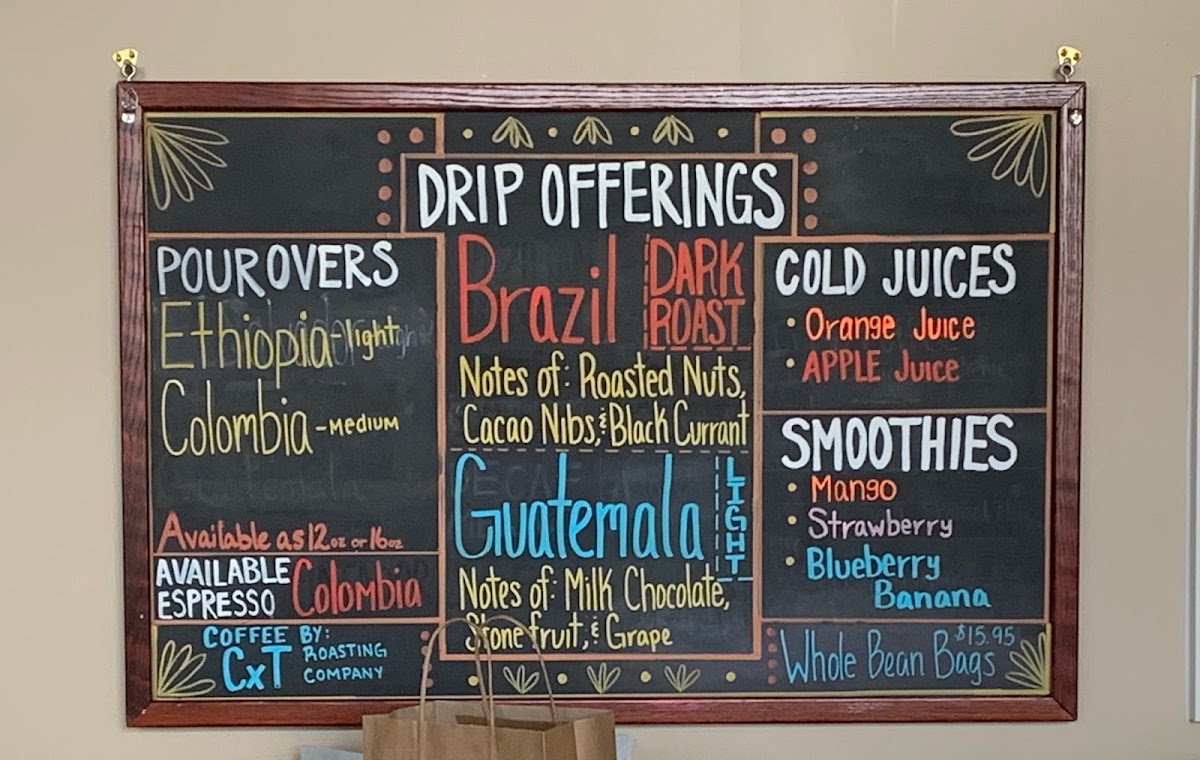 DRIP OFFERINGS
POUROVERS
Ethiopia-light
Colombia-MEDIUM
Available as 12oz or 16oz
AVAILABLE
ESPRESSO
Colombia
COFFEE BY:
CxT
ROASTING
COMPANY
Brazil
DARK
ROAST
Notes of: Roasted Nuts,
Cacao Nibs, & Black Currant
Guatemala
LIGHT
Notes of: Milk Chocolate,
Stone fruit, & Grape
COLD JUICES
• Orange Juice
• APPLE Juice
SMOOTHIES
• Mango
• Strawberry
• Blueberry
Banana
$15.95
Whole Bean Bags